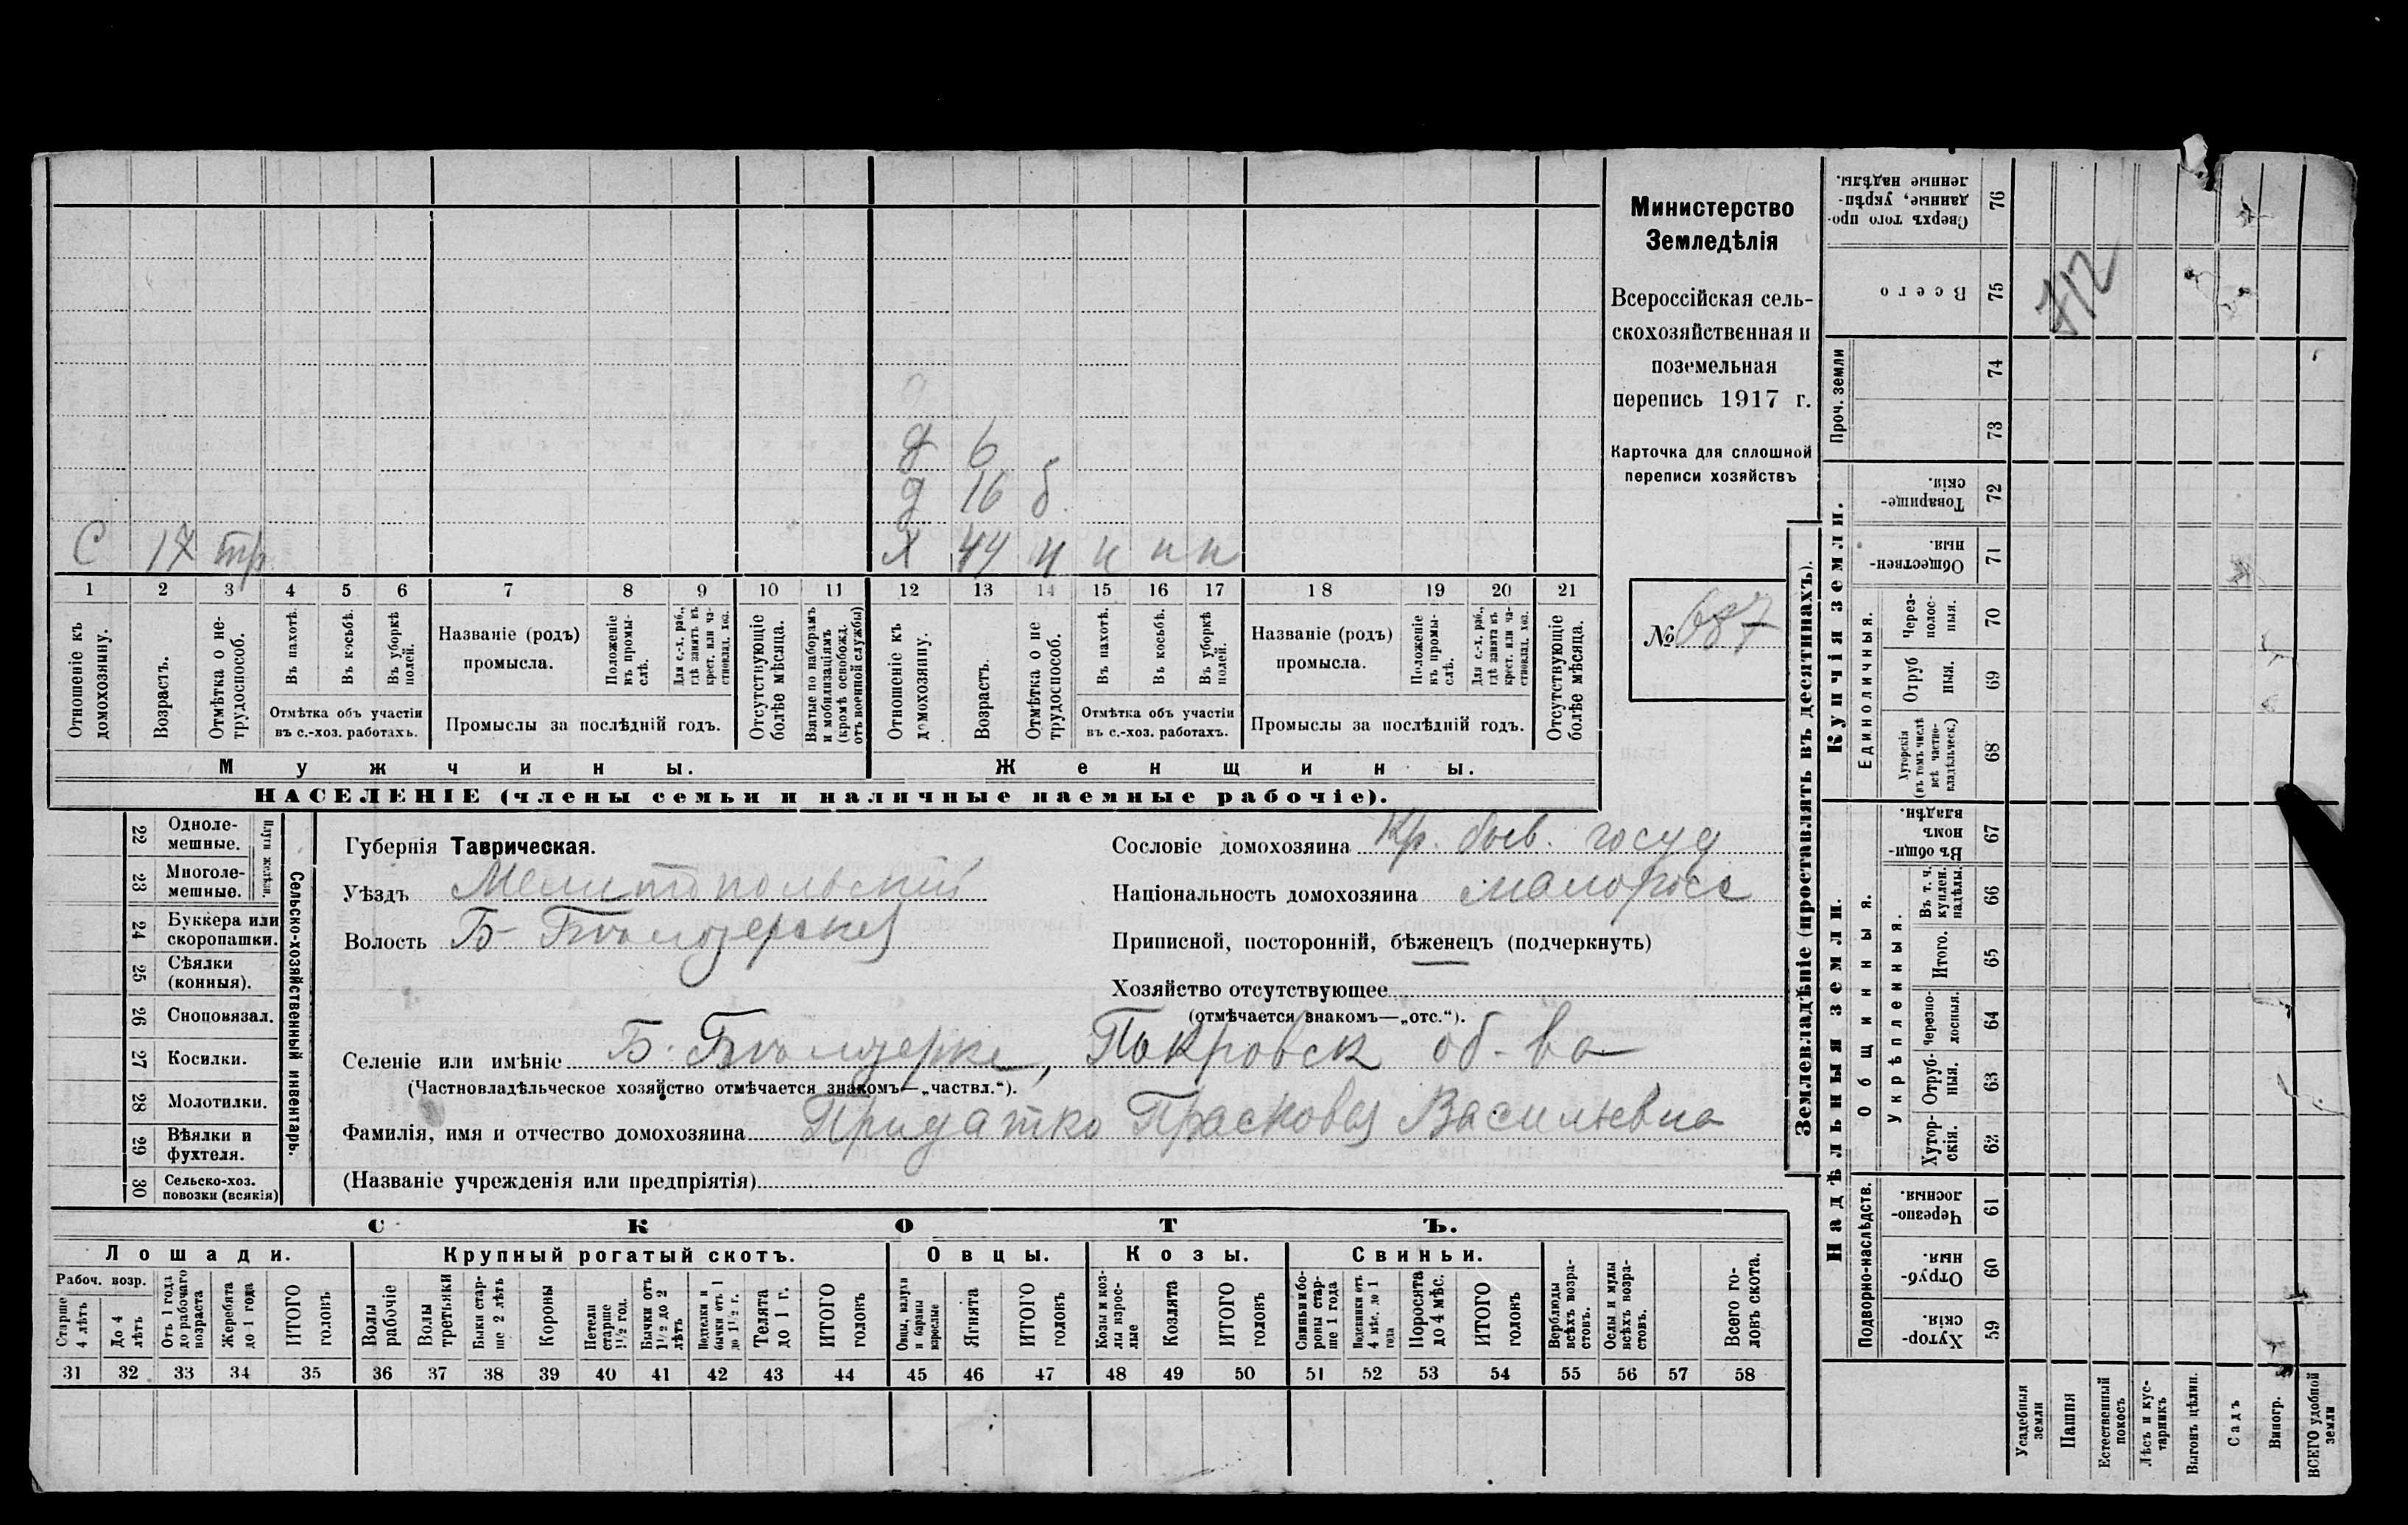 Министерство
Земледѣлія
Всероссійская сель-
скохозяйственная и
поземельная
перепись 1917 г.
Карточка для сплошной
переписи хозяйствъ
№ 687
д 6
д 16 б
С 17 тр
Х 44 н н н н
1 2 3 4 5 6 7 8 9 10 11 12 13 14 15 16 17 18 19 20 21
Отношеніе къ домохозяину.
Возрастъ.
Отмѣтка о не-трудоспособ.
Въ пахотѣ.
Въ косьбѣ.
Въ уборкѣ полей.
Отмѣтка объ участіи
въ с.-хоз. работахъ.
Названіе (родъ)
промысла.
Положеніе въ промы-слѣ.
Для с.-х. раб., гдѣ занятъ въ крест. или ча-стновлад. хоз.
Промыслы за послѣдній годъ.
Отсутствующіе болѣе мѣсяца.
Взятые по наборамъ и мобилизаціямъ (кромѣ освобожд. отъ военной службы)
Отношеніе къ домохозяину.
Возрастъ.
Отмѣтка о не трудоспособ.
Въ пахотѣ.
Въ косьбѣ.
Въ уборкѣ полей.
Отмѣтка объ участіи
въ с.-хоз. работахъ.
Названіе (родъ)
промысла.
Положеніе въ промы-слѣ.
Для с.-х. раб., гдѣ занята въ крест. или ча-стновлад. хоз.
Промыслы за послѣдній годъ.
Отсутствующіе болѣе мѣсяца.
Мужчины.
Женщины.
НАСЕЛЕНІЕ (члены семьи и наличные наемные рабочіе).
Сельско-хозяйственный инвентарь.
Плуги желѣзн.
22 Одноле-мешные.
23 Многоле-мешные.
24 Буккера или скоропашки.
25 Сѣялки (конныя).
26 Сноповязал.
27 Косилки.
28 Молотилки.
29 Вѣялки и фухтеля.
30 Сельско-хоз. повозки (всякія)
Губернія Таврическая.
Уѣздъ Мелитопольскій
Волость Б-Бѣлозерская
Сословіе домохозяина Кр. быв. госуд
Національность домохозяина малоросс
Приписной, посторонній, бѣженецъ (подчеркнуть)
Хозяйство отсутствующее
(отмѣчается знакомъ—„отс.“).
Селеніе или имѣніе Б. Бѣлозерке, Покровск об-ва
(Частновладѣльческое хозяйство отмѣчается знакомъ—„частвл.“).
Фамилія, имя и отчество домохозяина Придатко Прасковья Васильевна
(Названіе учрежденія или предпріятія)
СКОТЪ.
Лошади.
Крупный рогатый скотъ.
Овцы.
Козы.
Свиньи.
Рабоч. возр.
Старше 4 лѣтъ
До 4 лѣтъ
Отъ 1 года до рабочаго возраста
Жеребята до 1 года
ИТОГО головъ
Волы рабочіе
Волы третьяки
Быки стар-ше 2 лѣтъ
Коровы
Нетели старше 1½ год.
Бычки отъ 1½ до 2 лѣтъ
Подтелки и бычки отъ 1 до 1½ г.
Телята до 1 г.
ИТОГО головъ
Овцы, валухи и бараны взрослые
Ягнята
ИТОГО головъ
Козы и коз-лы взрос-лые
Козлята
ИТОГО головъ
Свиньи и бо-ровы стар-ше 1 года
Подсвинки отъ 4 мѣс. до 1 года
Поросята до 4 мѣс.
ИТОГО головъ
Верблюды всѣхъ возра-стовъ.
Ослы и мулы всѣхъ возра-стовъ.
Всего го-ловъ скота.
31 32 33 34 35 36 37 38 39 40 41 42 43 44 45 46 47 48 49 50 51 52 53 54 55 56 57 58
Землевладѣніе (проставлять въ десятинахъ).
Сверхъ того про-данные, укрѣп-ленные надѣлы. 76
Всего 75
712
Проч. земли
74
73
Купчія земли.
Товарище-скія. 72
Обществен-ныя. 71
Единоличныя.
Через-полос-ныя. 70
Отруб ныя. 69
Хуторскія (въ томъ числѣ всѣ частно-владѣльческ.) 68
Надѣльныя земли.
Общинныя.
Въ общи-номъ владѣн. 67
Укрѣпленныя.
Въ т. ч. куплен. надѣлы. 66
Итого. 65
черезпо-лосныя. 64
Отруб-ныя. 63
Хутор-скія. 62
Подворно-наслѣдств.
Черезпо-лосныя. 61
Отруб-ныя. 60
Хутор-скія. 59
Усадебныя земли
Пашня
Естественный покосъ
Лѣсъ и кус-тарникъ
Выгонъ цѣлин.
Садъ
Виногр.
ВСЕГО удобной земли